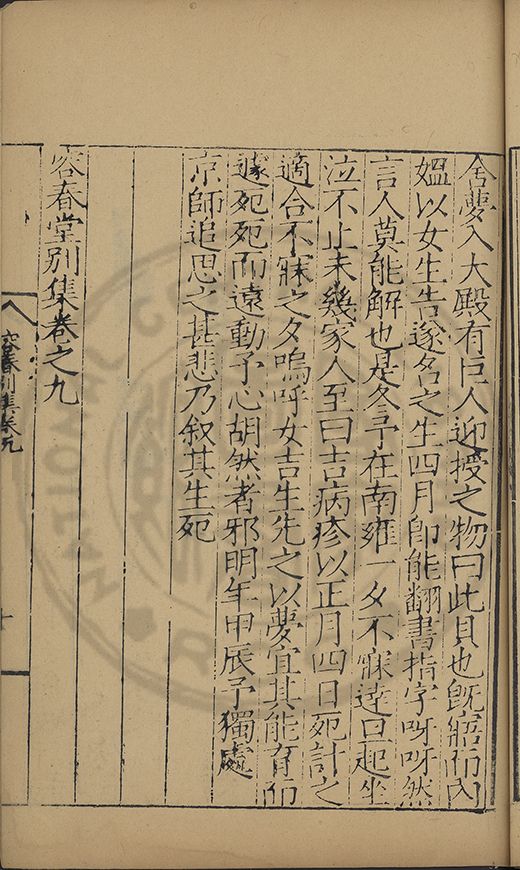 舍夢入大殿有巨人迎授之物曰此貝也旣寤而內
媼以女生告遂名之生四月卽能翻書指字呀呀然
言人莫能解也是冬予在南雍一夕不寐達旦起坐
泣不止未幾家人至曰吉病疹以正月四日死計之
適合不寐之夕嗚呼女吉生先之以夢宜其能有而
遽死死而遠動予心胡然者邪明年甲辰予獨處
京師追思之甚悲乃叙其生死
容春堂別集卷之九
容春別集卷九